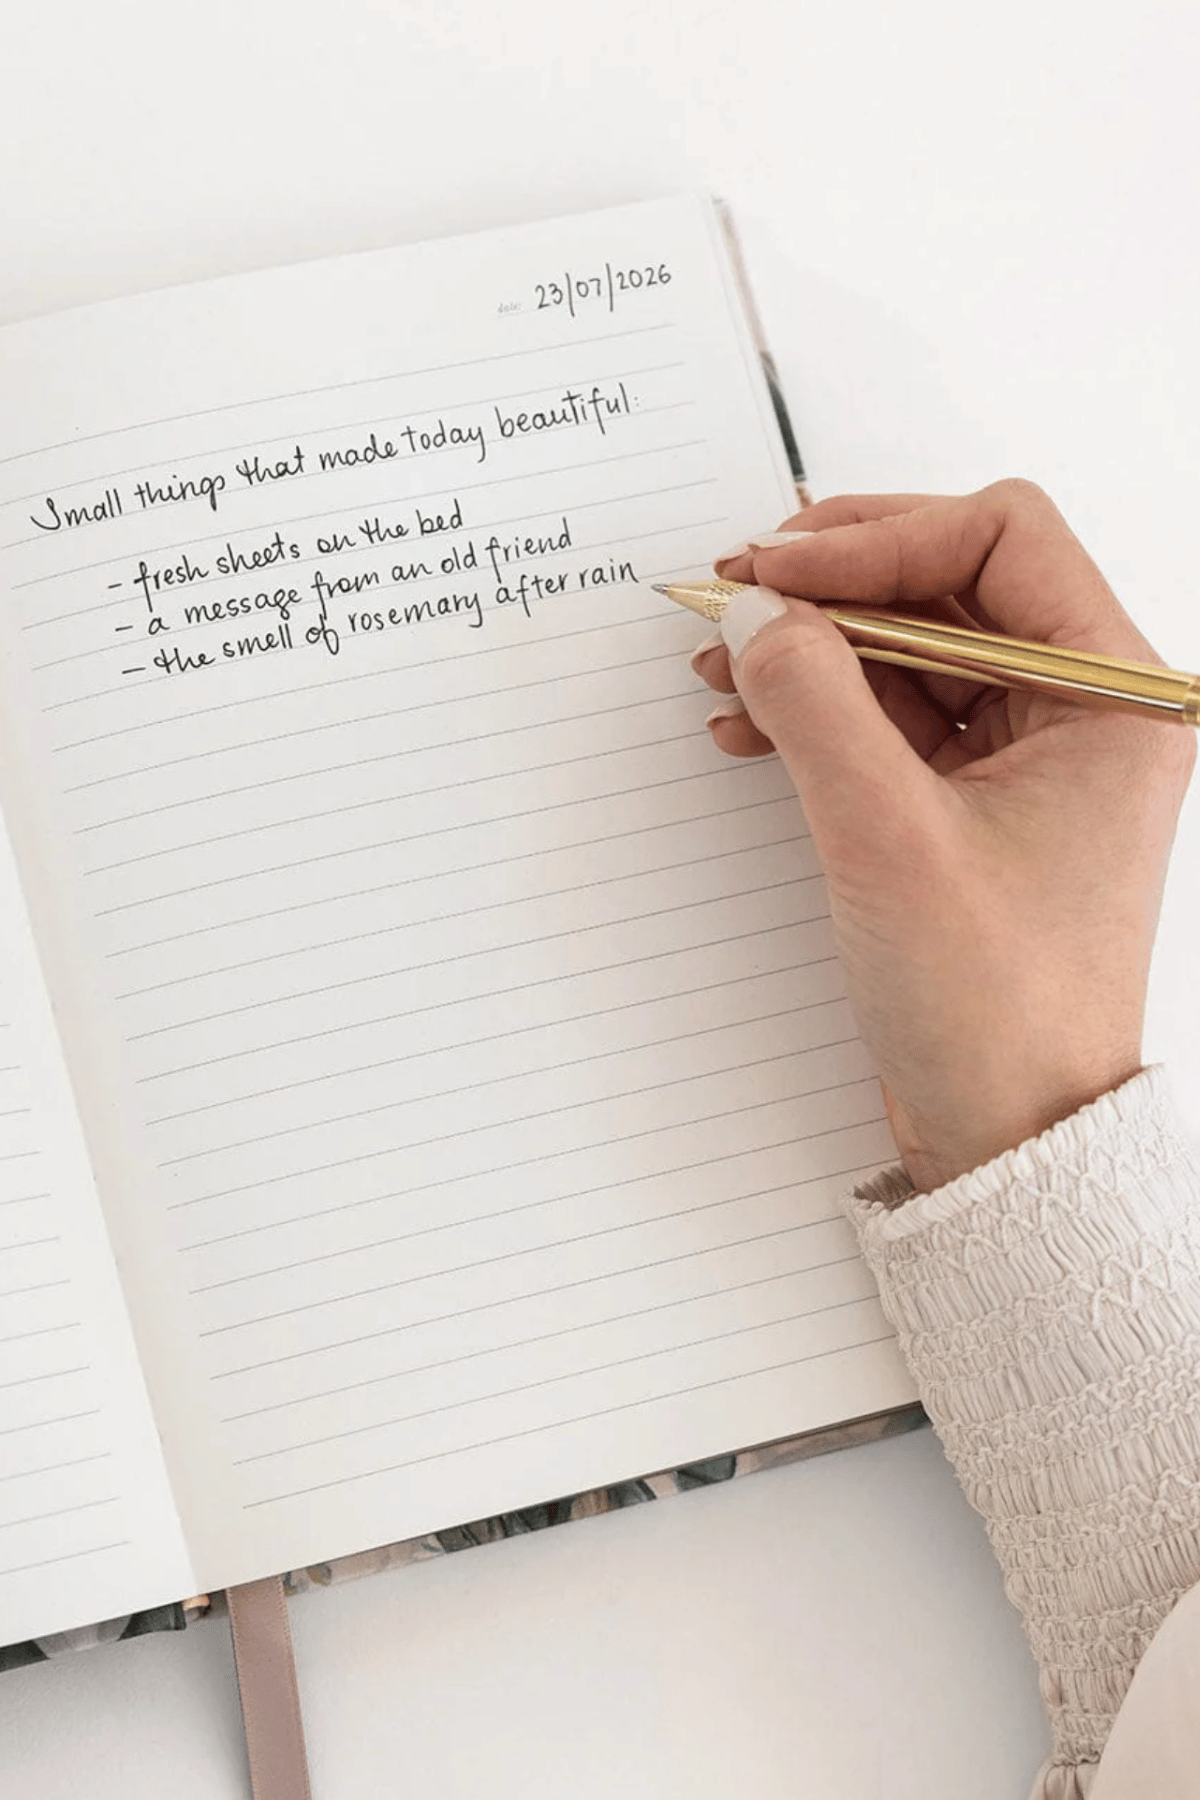 date: 23/07/2026
Small things that made today beautiful:
- fresh sheets on the bed
- a message from an old friend
- the smell of rosemary after rain